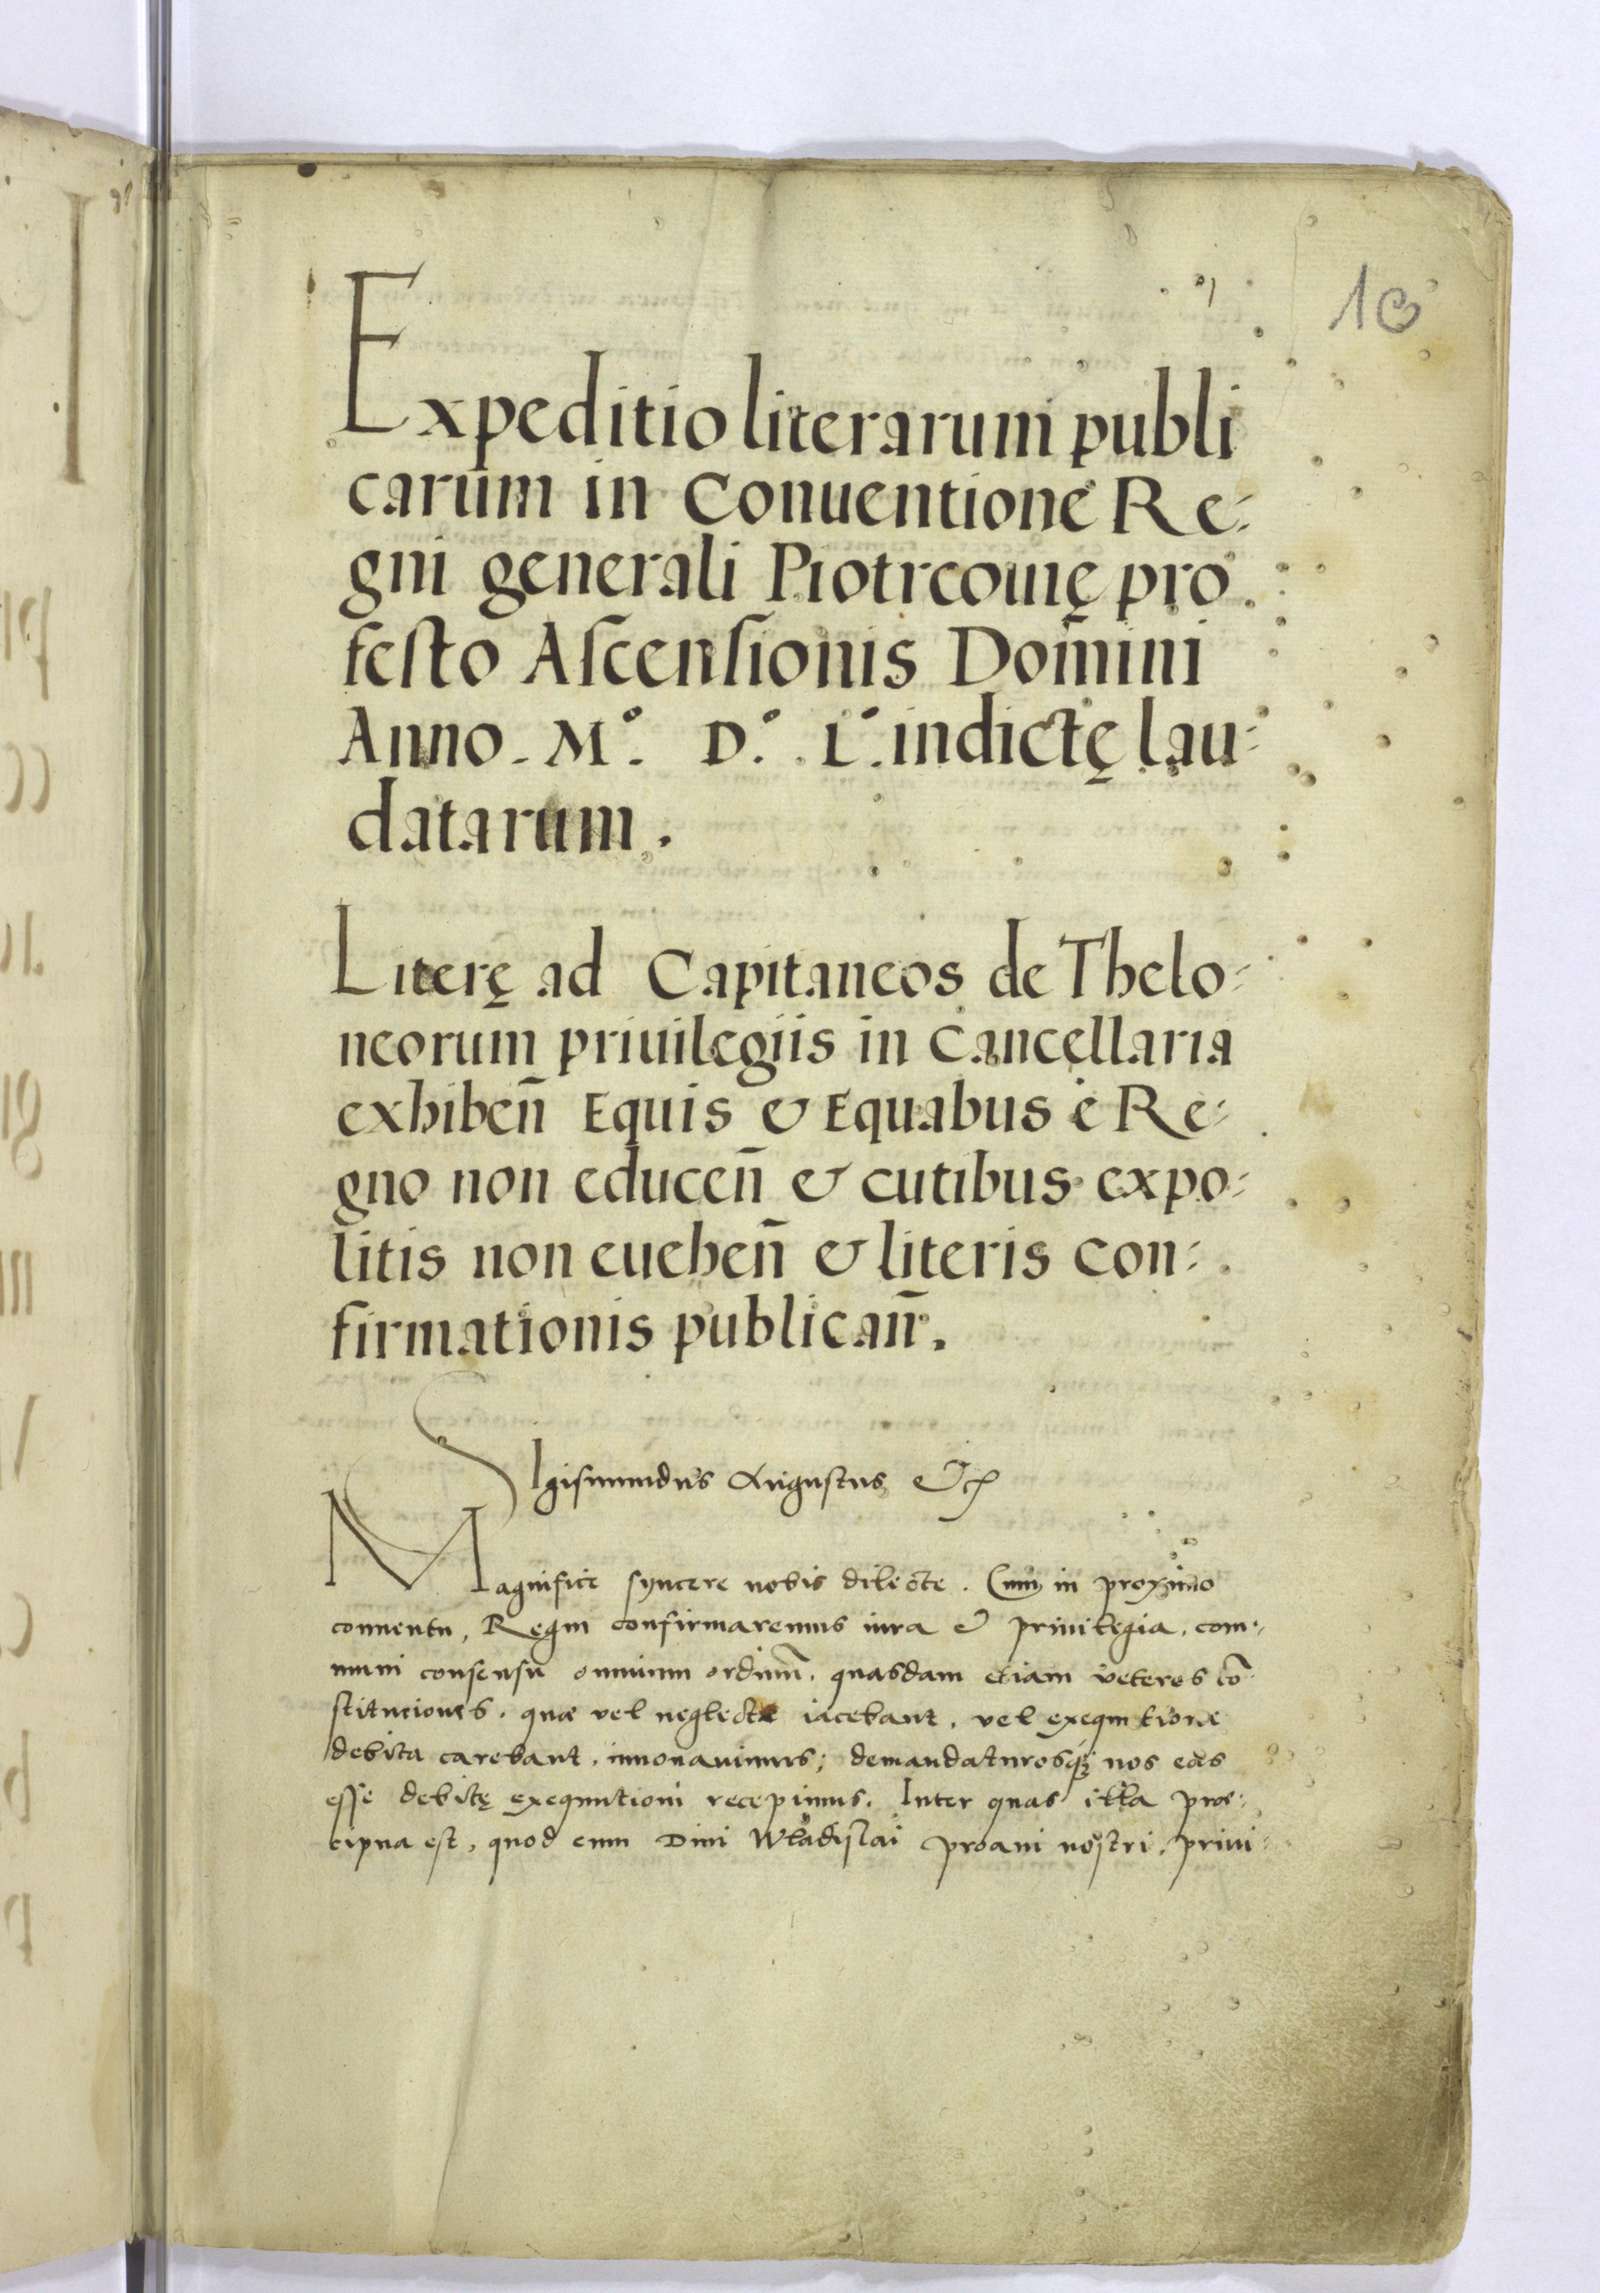 10
Expeditio literarum publi
carum in Conuentione Re-
gni generali Piotrcouię pro
festo Ascensionis Domini
Anno. M°. D°. L°. indictę lau-
datarum.
Literę ad Capitaneos de Thelo-
neorum priuilegiis in Cancellaria
exhiben̄ Equis & Equabus è Re-
gno non educen̄ & cutibus expo-
litis non eueben̄ & literis con-
firmationis publican̄.
Sigismundus Augustus Etc
Magnifice syncere nobis dilecte. Cum in proximo
conuentu, Regni confirmaremus iura & priuilegia, com-
muni consensu omnium ordinū, quasdam etiam veteres cō
stituciones, quæ vel neglectæ iacebant, vel exequutione
debita carebant, innouauimus; demandaturosq; nos eas
esse debitę exequutioni recepimus. Inter quas illa præ-
cipua est, quod cum Diui Wladislai proaui nostri, priui-